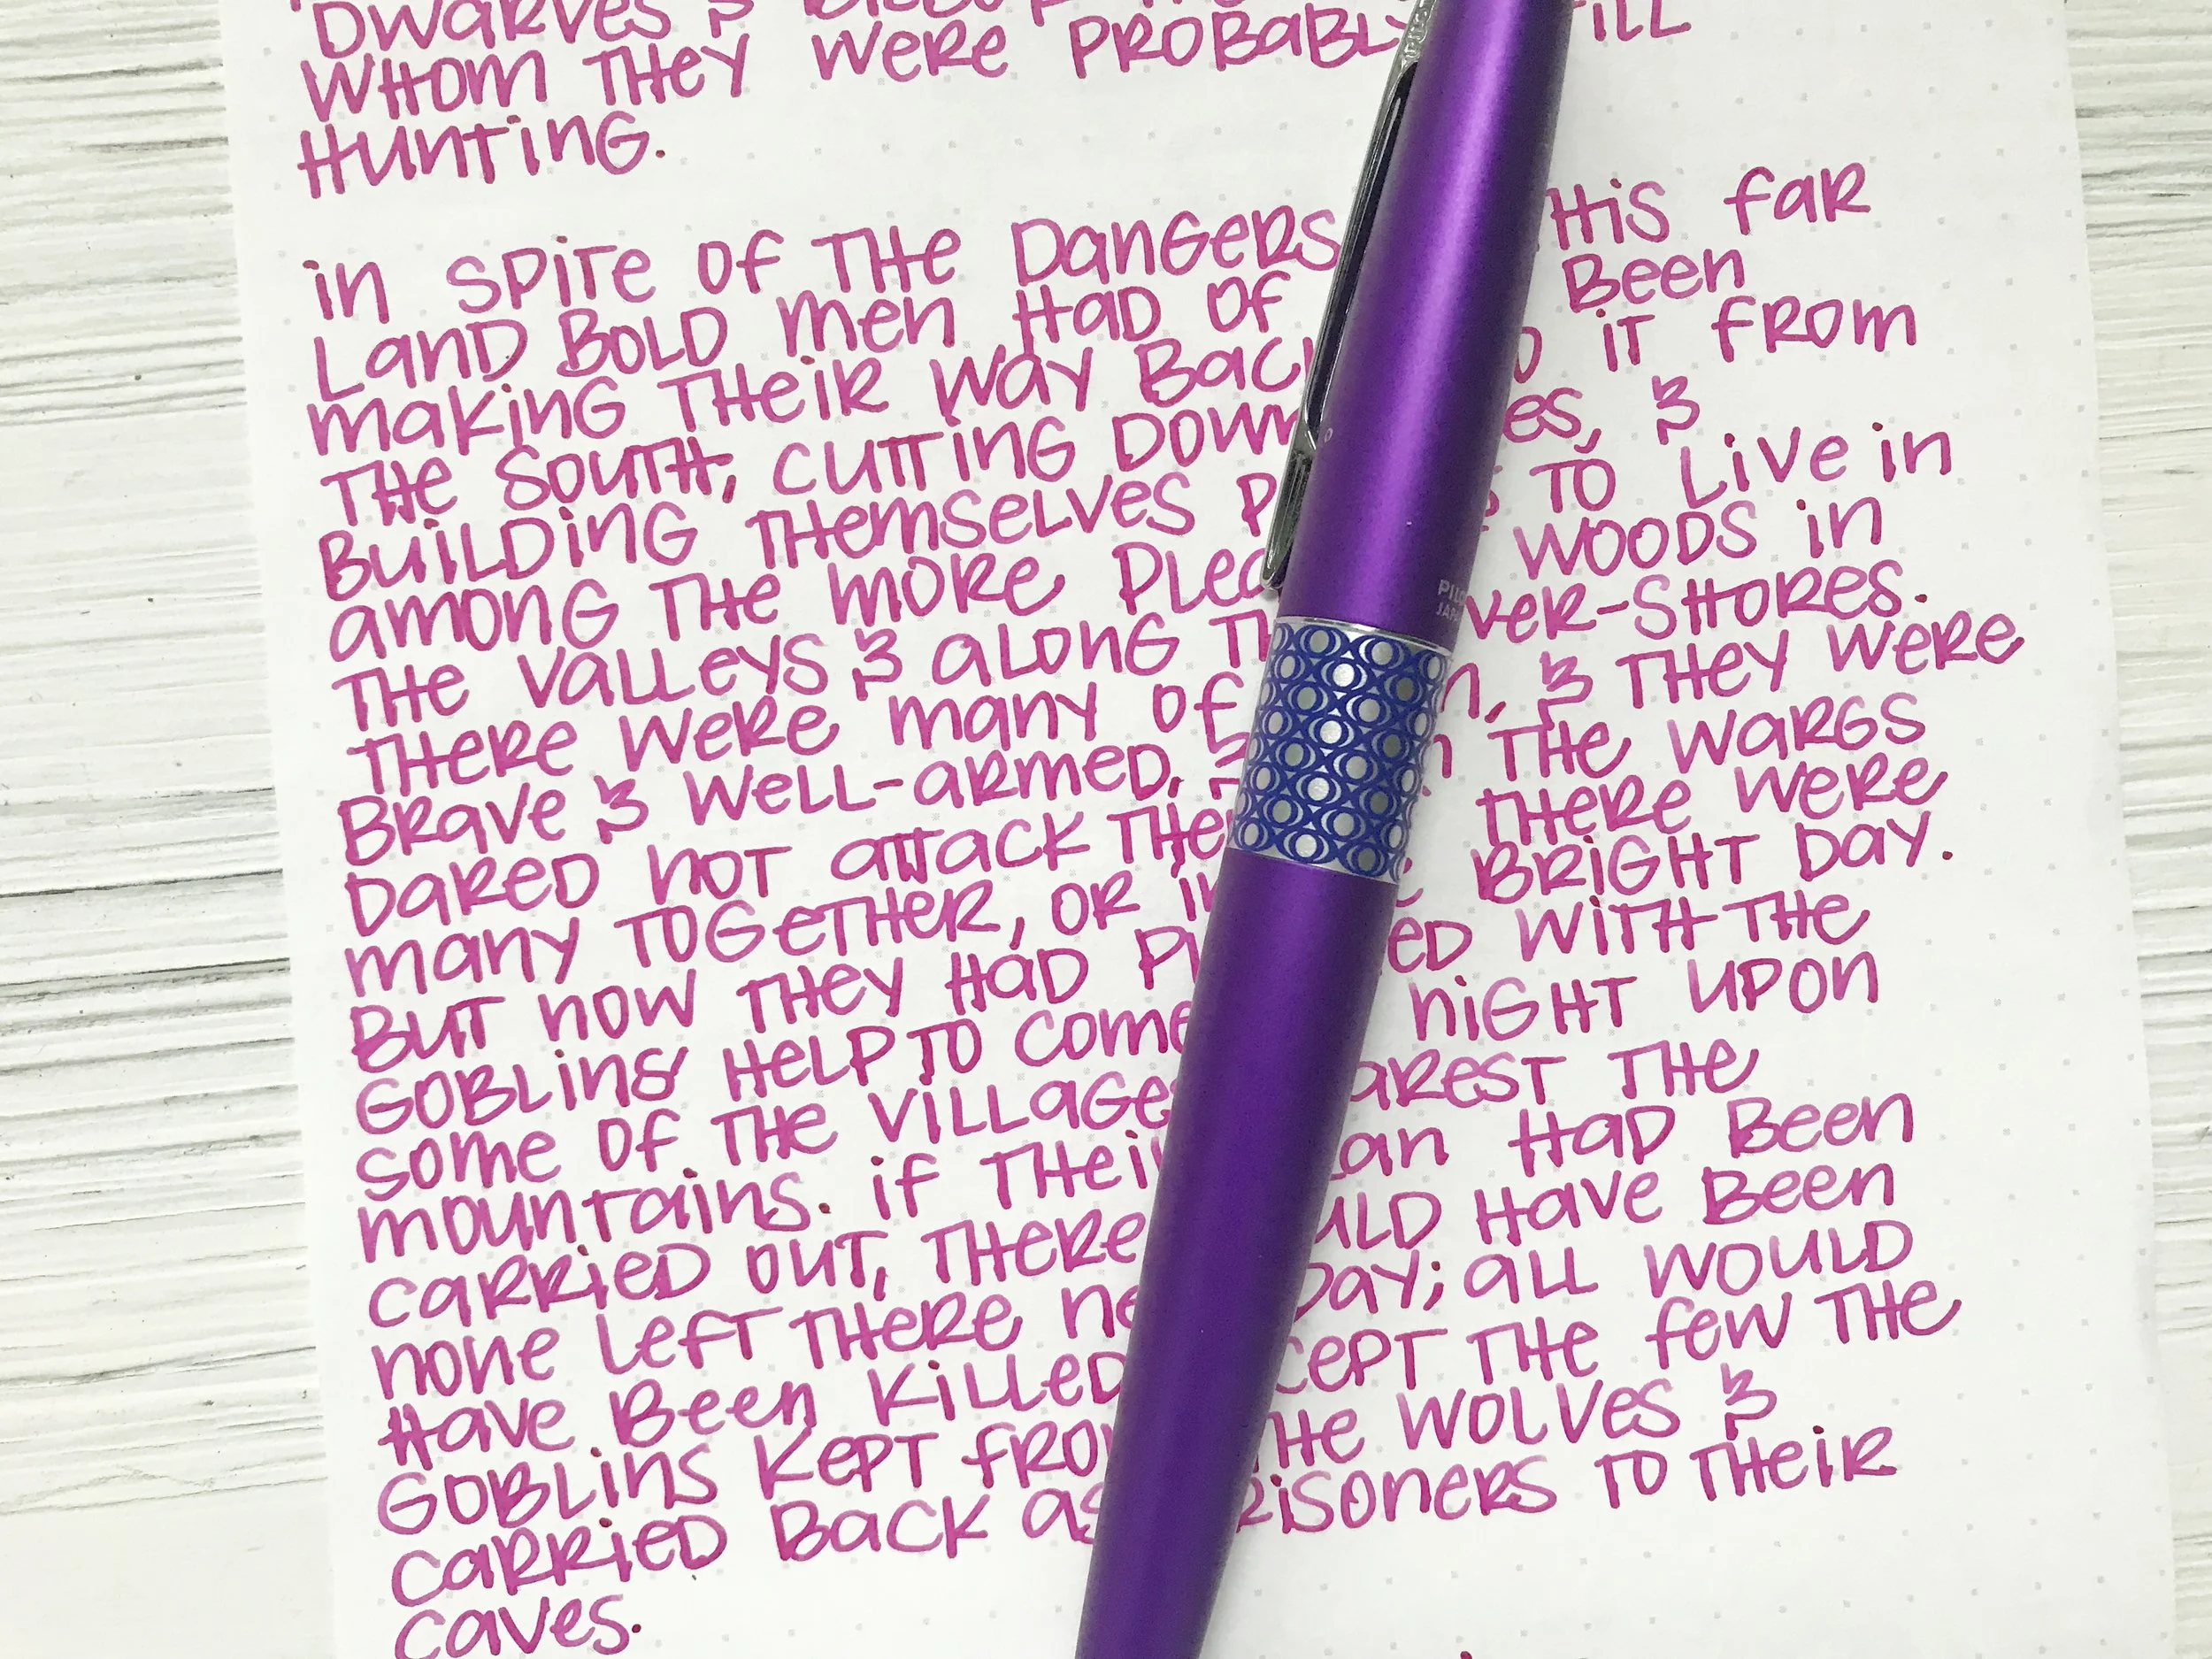 Dwarves &
whom they were probably
hunting.
in spite of the dangers this far
land bold men had of been
making their way back it from
the south, cutting down &
building themselves to live in
among the more woods in
the valleys & along -shores.
there were many of & they were
brave & well-armed, the wargs
dared not attack there were
many together, or bright day.
but now they had with the
goblins' help to come night upon
some of the villages the
mountains. if their had been
carried out, there have been
none left there day; all would
have been killed the few the
goblins kept the wolves &
carried back as to their
caves.
PILOT
JAPAN